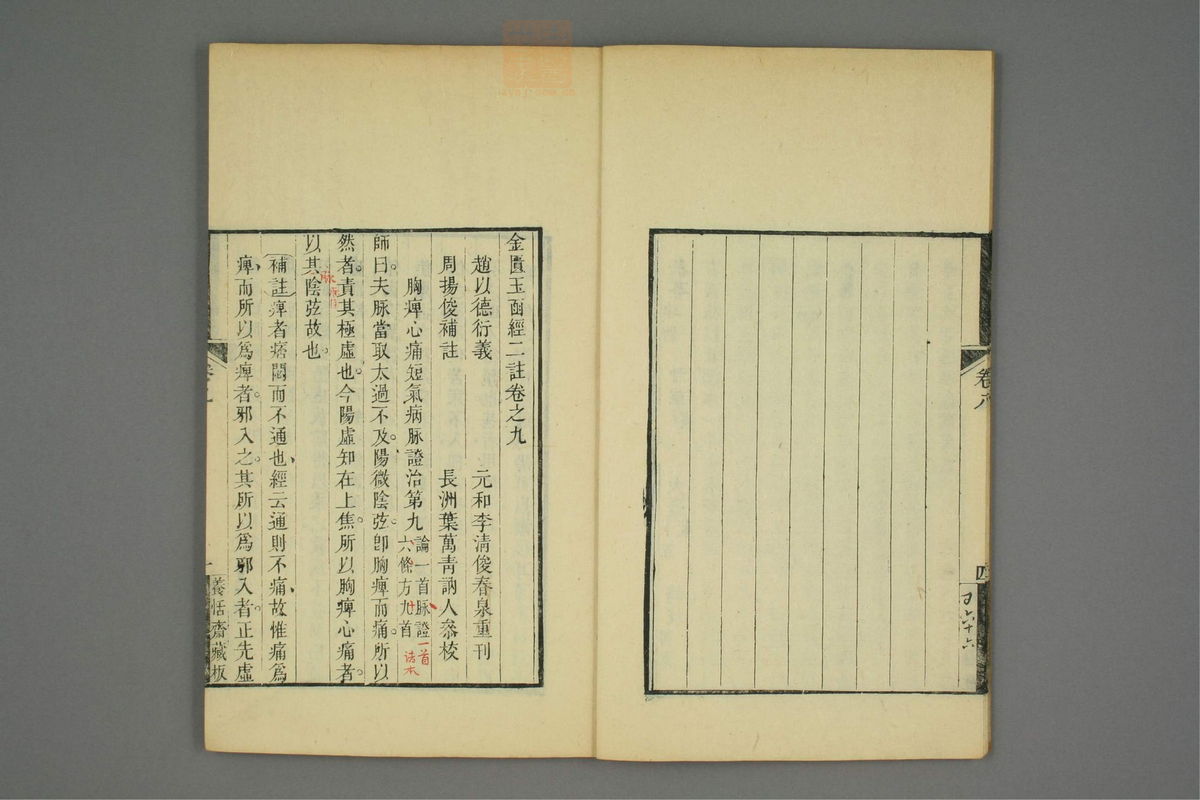 卷八
四
金匱玉函經二註卷之九
趙以德衍義　元和李清俊春泉重刊
周揚俊補註　長洲葉萬青訥人叅校
胸痺心痛短氣病脉證治第九
論一首脉證
六條方九首
一首
師曰夫脉當取太過不及陽微陰弦卽胸痺而痛所以
然者責其極虛也今陽虛知在上焦所以胸痺心痛者
脉
以其陰弦故也
補註痺者痞悶而不通也經云通則不痛故惟痛爲
痺而所以爲痺者邪入之其所以爲邪入者正先虛
一
養恬齋藏板